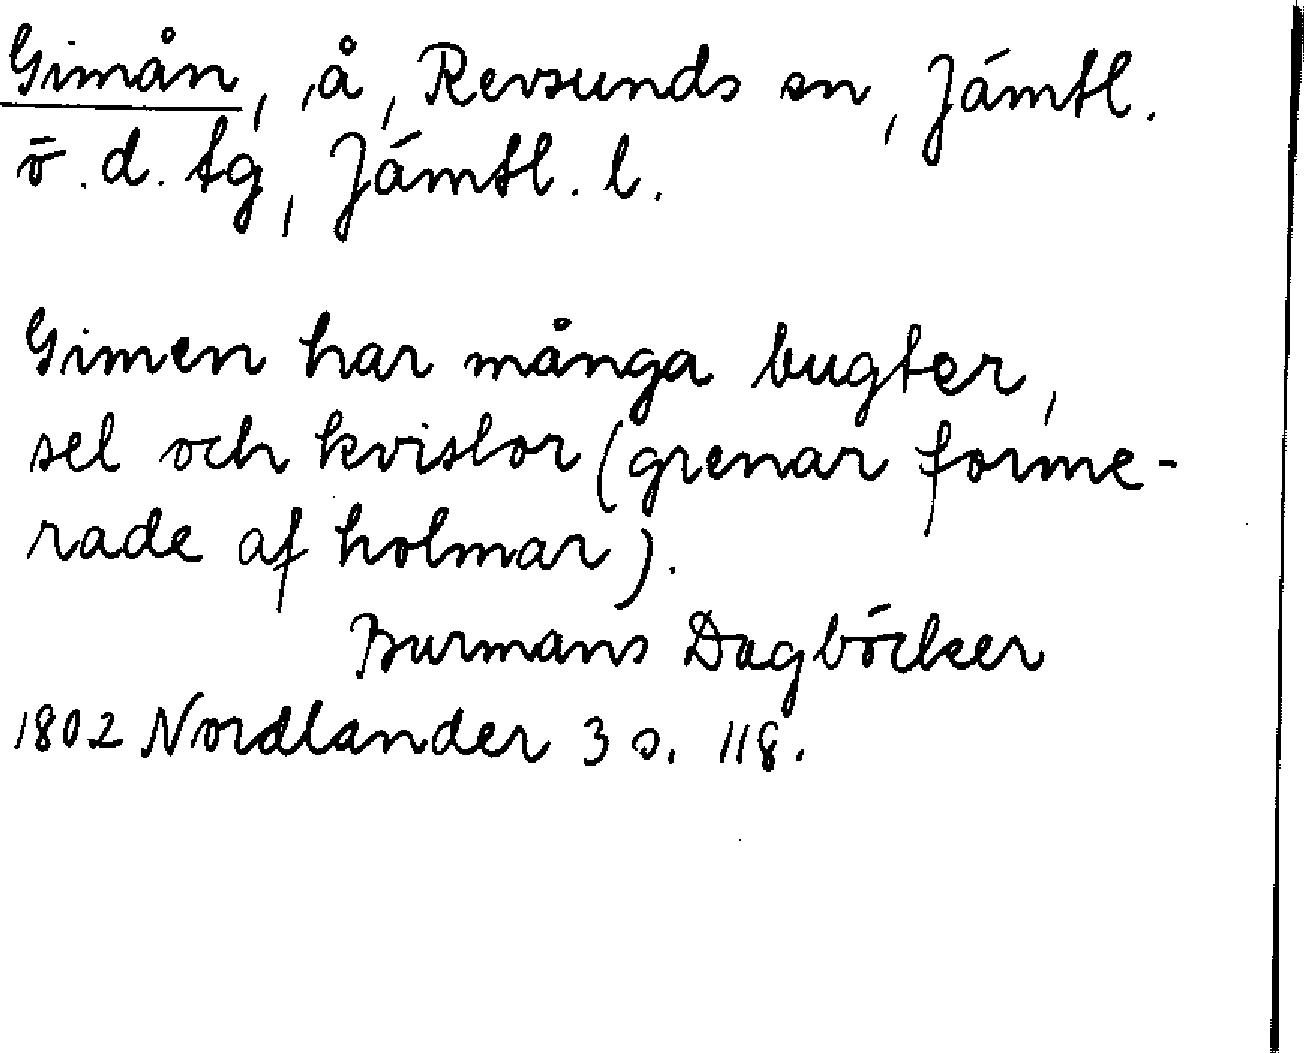 Gimån, å, Revsunds sn, Jämtl.
ö. d. tg, Jämtl. l.
Gimen har många bugter,
sel och kvislor (grenar forme-
rade af holmar).
Burmans Dagböcker
1802 Nordlander 3 s. 118.